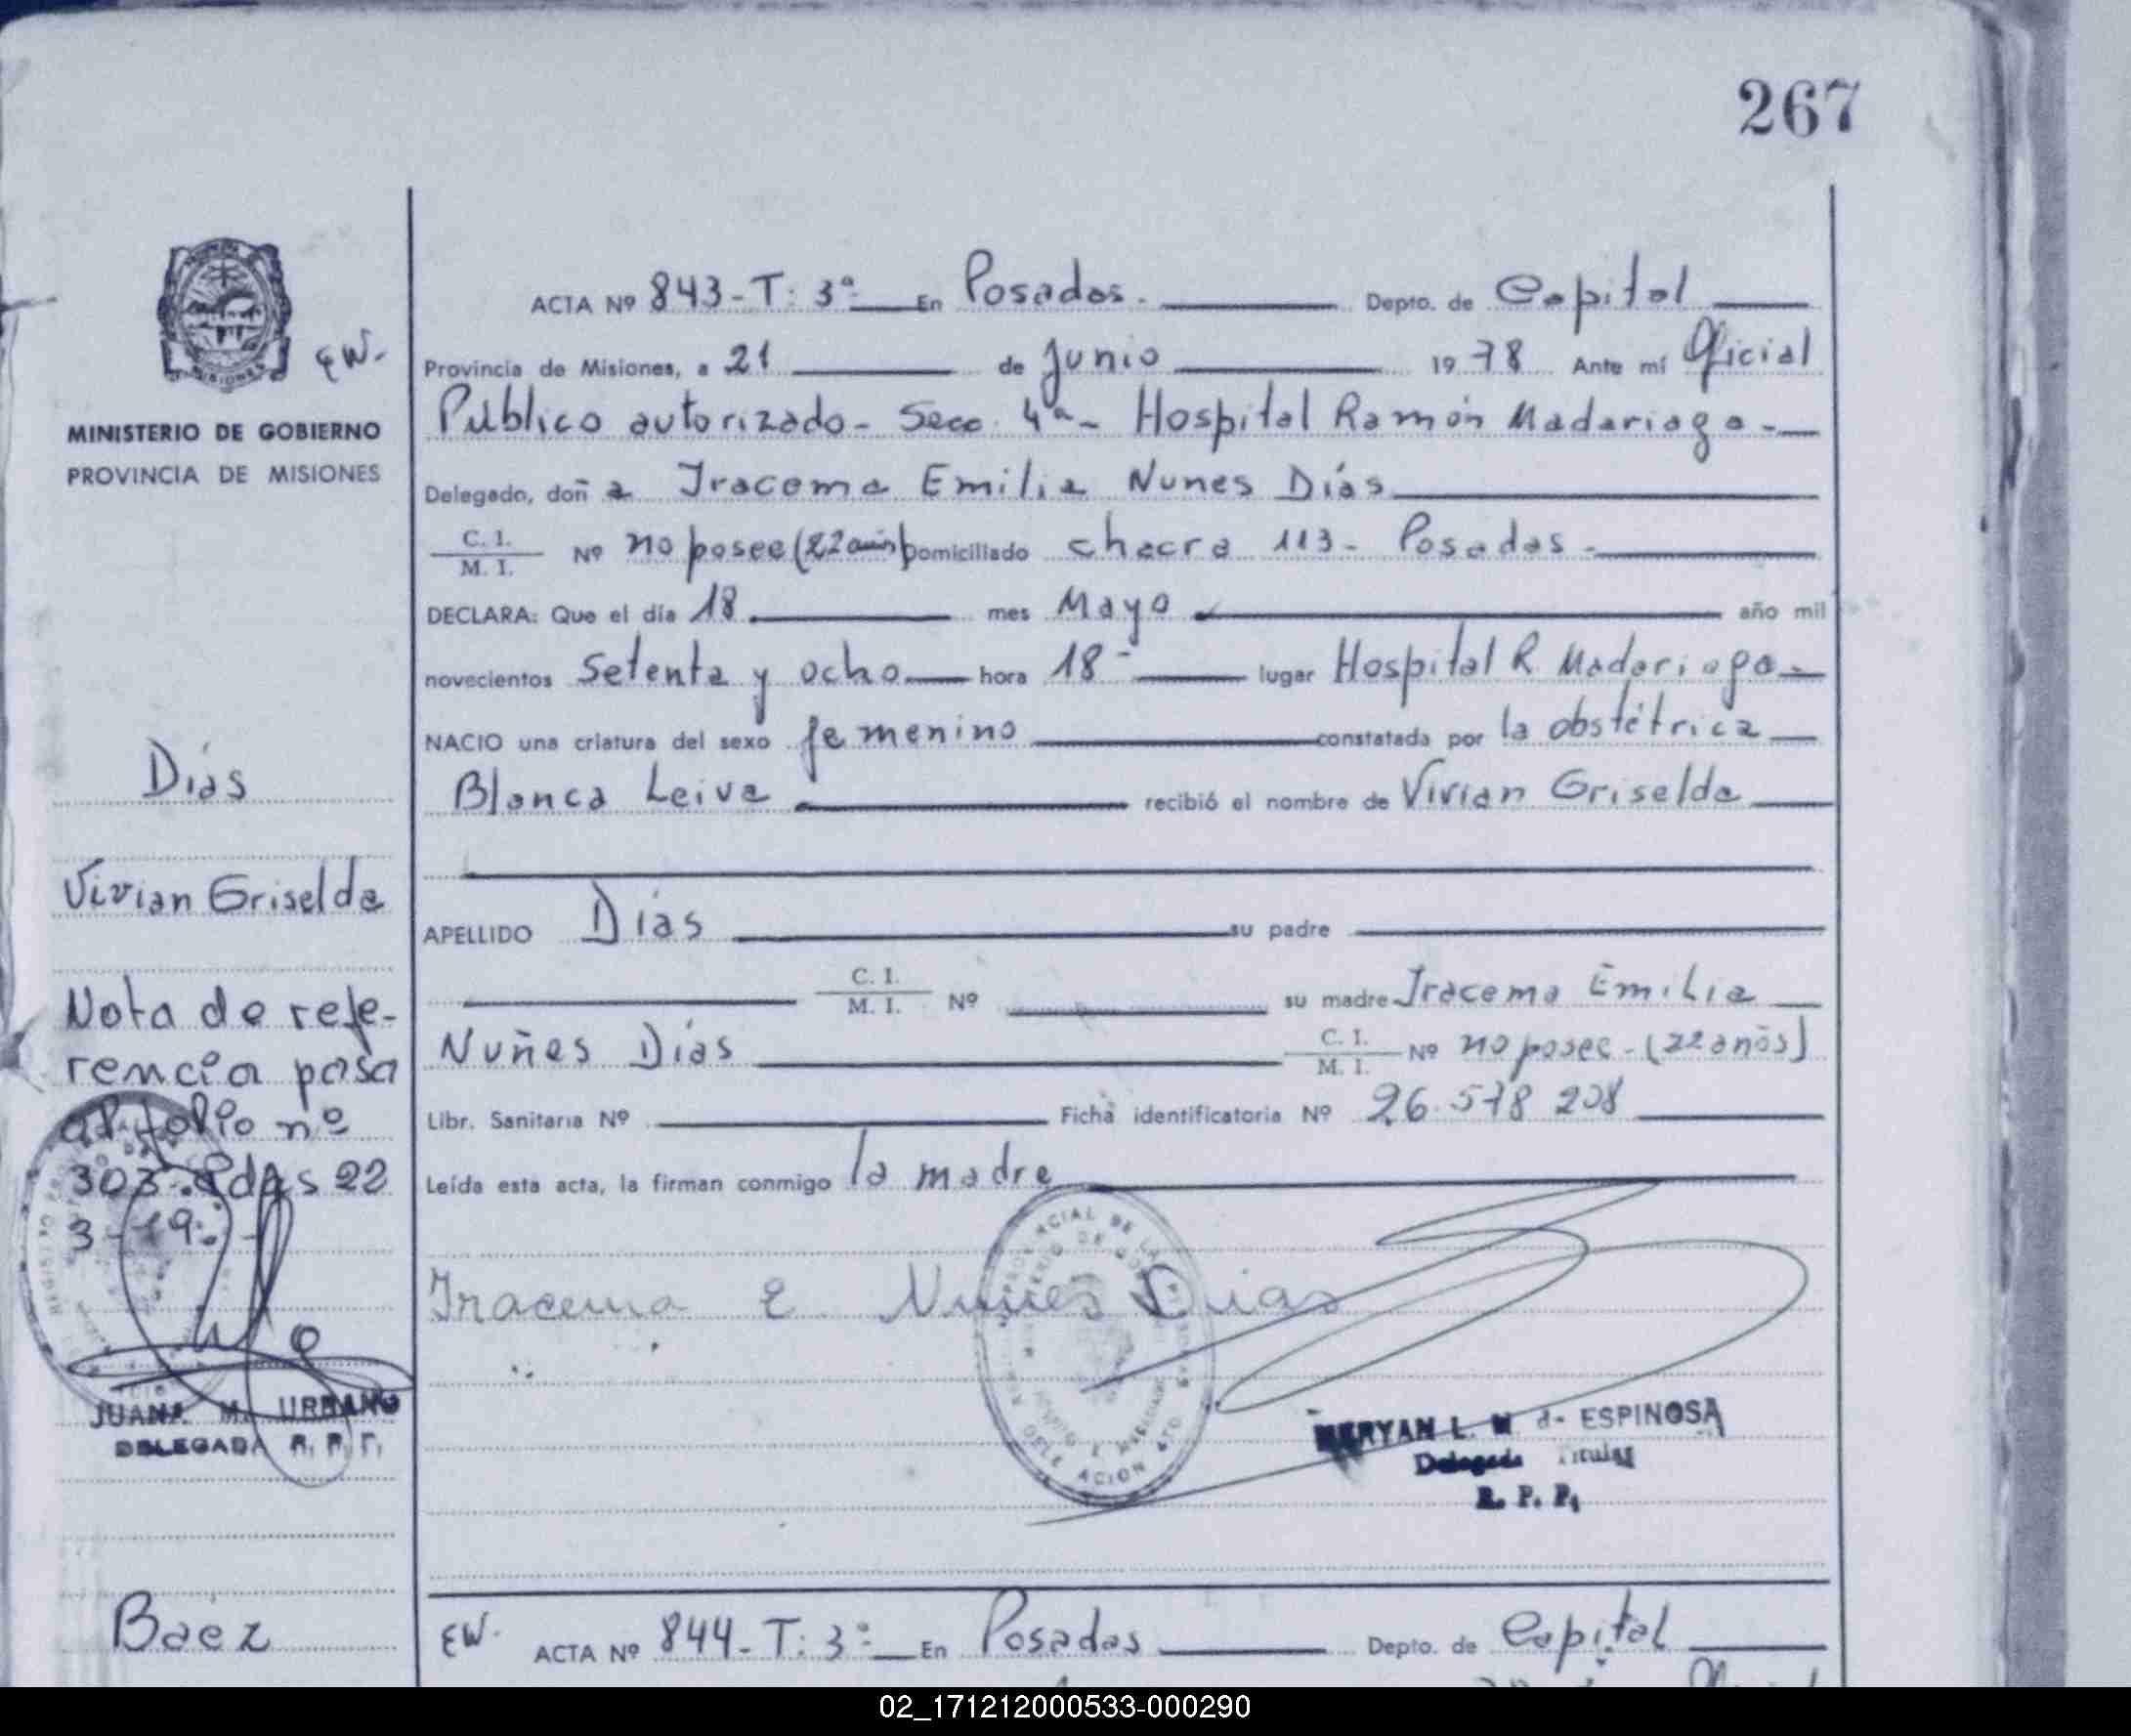 267
ACTA Nº 843-T: 3ª En Posadas. Depto. de Capital
EW.
Provincia de Misiones, a 21 de Junio 1978 Ante mí Oficial
Público autorizado- Secc. 4ª- Hospital Ramón Madariaga-
MINISTERIO DE GOBIERNO
PROVINCIA DE MISIONES
Delegado, doña Iracema Emilia Nunes Días
C. I.
M. I. Nº no posee (22 años) Domiciliado chacra 113- Posadas-
DECLARA: Que el día 18 mes Mayo año mil
novecientos setenta y ocho hora 18- lugar Hospital R Madariaga-
NACIO una criatura del sexo femenino constatada por la obstétrica
Blanca Leiva recibió el nombre de Vivian Griselda
Días
Vivian Griselda
APELLIDO Días su padre
C. I.
M. I. Nº su madre Iracema Emilia
Nuñes Días C. I.
M. I. Nº no posee-(22 años)
Libr. Sanitaria Nº Ficha identificatoria Nº 26.578 208
Leída esta acta, la firman conmigo la madre
Nota de refe-
rencia pasa
al folio nº
303-Pdas 22
3-19
Iracema E Nunes Dias
JUANA M. URBANO
DELEGADA R. P. P.
MERYAN L. M d- ESPINOSA
Delegada Titular
R. P. P.
Baez
EW. ACTA Nº 844-T: 3ª En Posadas Depto. de Capital
02_171212000533-000290